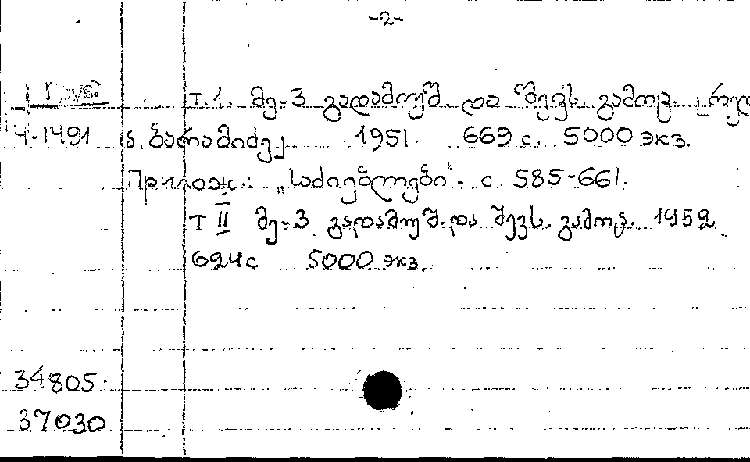 -2-
Т.1. მე-3 გადამუშ. და შევს. გამოც.
4-1491 ა. ბარამიძე 1951. 669 с. 5000 экз.
Прилож.: „საძიებლები". с. 585-661.
Т II მე-3 გადამუშ. და შევს. გამოც. 1952
624 с 5000 экз.
34805
37030